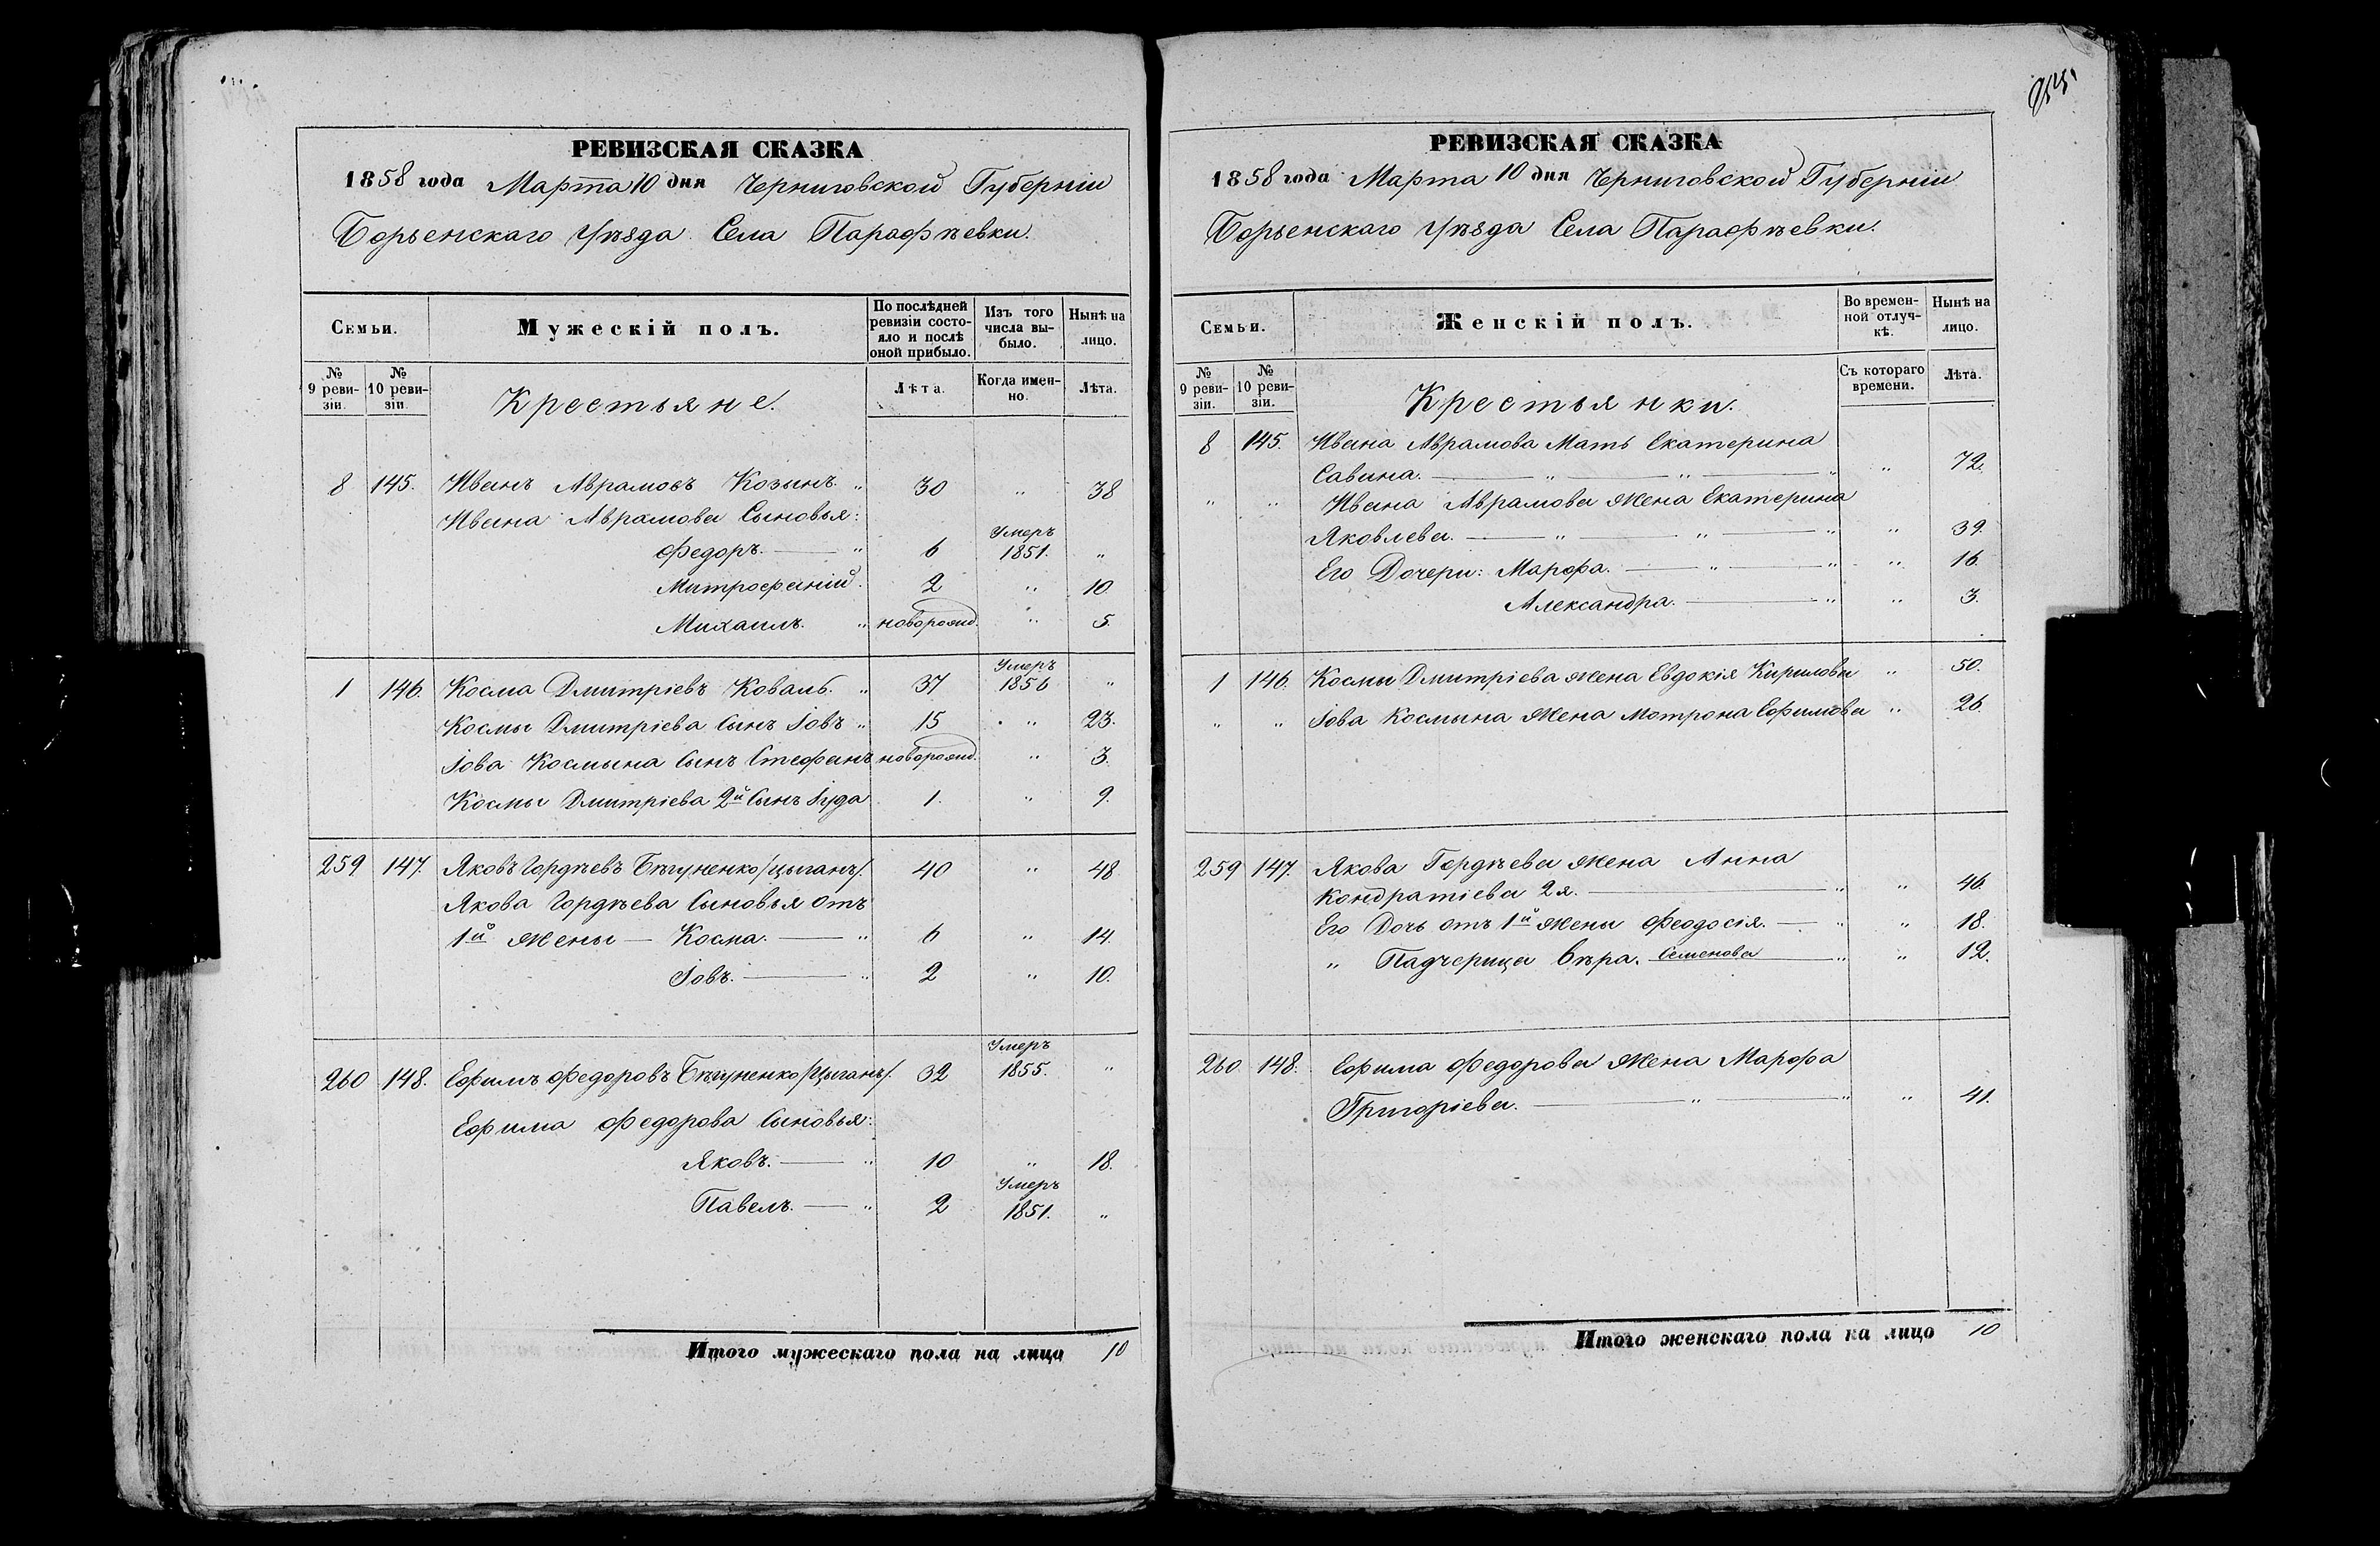 РЕВИЗСКАЯ СКАЗКА
1858 года Марта 10 дня Черниговской Губерніи
Борзенскаго Уѣзда Села Парафѣевки.
Семьи.
Мужескій полъ.
По послѣдней ревизіи состояло и послѣ оной прибыло.
Изъ того числа выбыло.
Нынѣ на лицо.
№ 9 ревизіи.
№ 10 ревизіи.
Крестьяне.
Лѣта.
Когда именно.
Лѣта.
8 145. Иванъ Аврамовъ Козынъ. „ 30 „ 38
Ивана Аврамова Сыновья:
Федоръ. — „ 6 Умеръ 1851. „
Митрофаній. 2 „ 10
Михаилъ. „ новорожд. „ 5.
1 146 Косма Дмитріевъ Коваль. „ 37 Умеръ 1856 „
Космы Дмитріева Сынъ Іовъ „ 15 „ 23.
Іова Космына Сынъ Стефанъ новорожд. „ 3.
Космы Дмитріева 2й Сынъ Іуда 1. „ 9.
259 147. Яковъ Гордѣевъ Бѣгуненко /цыганъ/. 40 „ 48
Якова Гордѣева Сыновья отъ
1й Жены — Косма. — „ 6 „ 14.
Іовъ. — „ 2 „ 10.
260 148. Ефимъ Федоровъ Бѣгуненко /Цыганъ/. 32 Умеръ 1855. „
Ефима Федорова Сыновья:
Яковъ. — „ 10 „ 18.
Павелъ. — „ 2 Умеръ 1851. „
Итого мужескаго пола на лицо 10
РЕВИЗСКАЯ СКАЗКА
1858 года Марта 10 дня Черниговской Губерніи
Борзенскаго Уѣзда Села Парафѣевки.
Семьи.
Женскій полъ.
Во временной отлучкѣ.
Нынѣ на лицо.
№ 9 ревизіи.
№ 10 ревизіи.
Крестьянки.
Съ котораго времени.
Лѣта.
8 145. Ивана Аврамова Мать Екатерина
Савина. — „ — „ — „ „ 72.
„ „ Ивана Аврамова Жена Екатерина
Яковлева. — „ — „ — „ „ 39.
Его Дочери: Марфа. — „ — „ „ 16.
Александра. — „ „ 3.
1 146. Космы Дмитріева Жена Евдокія Кирилова „ 50.
„ „ Іова Космына Жена Мотрона Ефимова „ 26.
259 147. Якова Гордѣева Жена Анна
Кондратіева 2я. — „ „ 46.
Его Дочь отъ 1й Жены Феодосія. — „ „ 18.
„ Падчерица Вѣра. Семенова — „ „ 12.
260 148. Ефима Федорова Жена Марфа
Григоріева. — „ — „ „ 41.
Итого женскаго пола на лицо 10